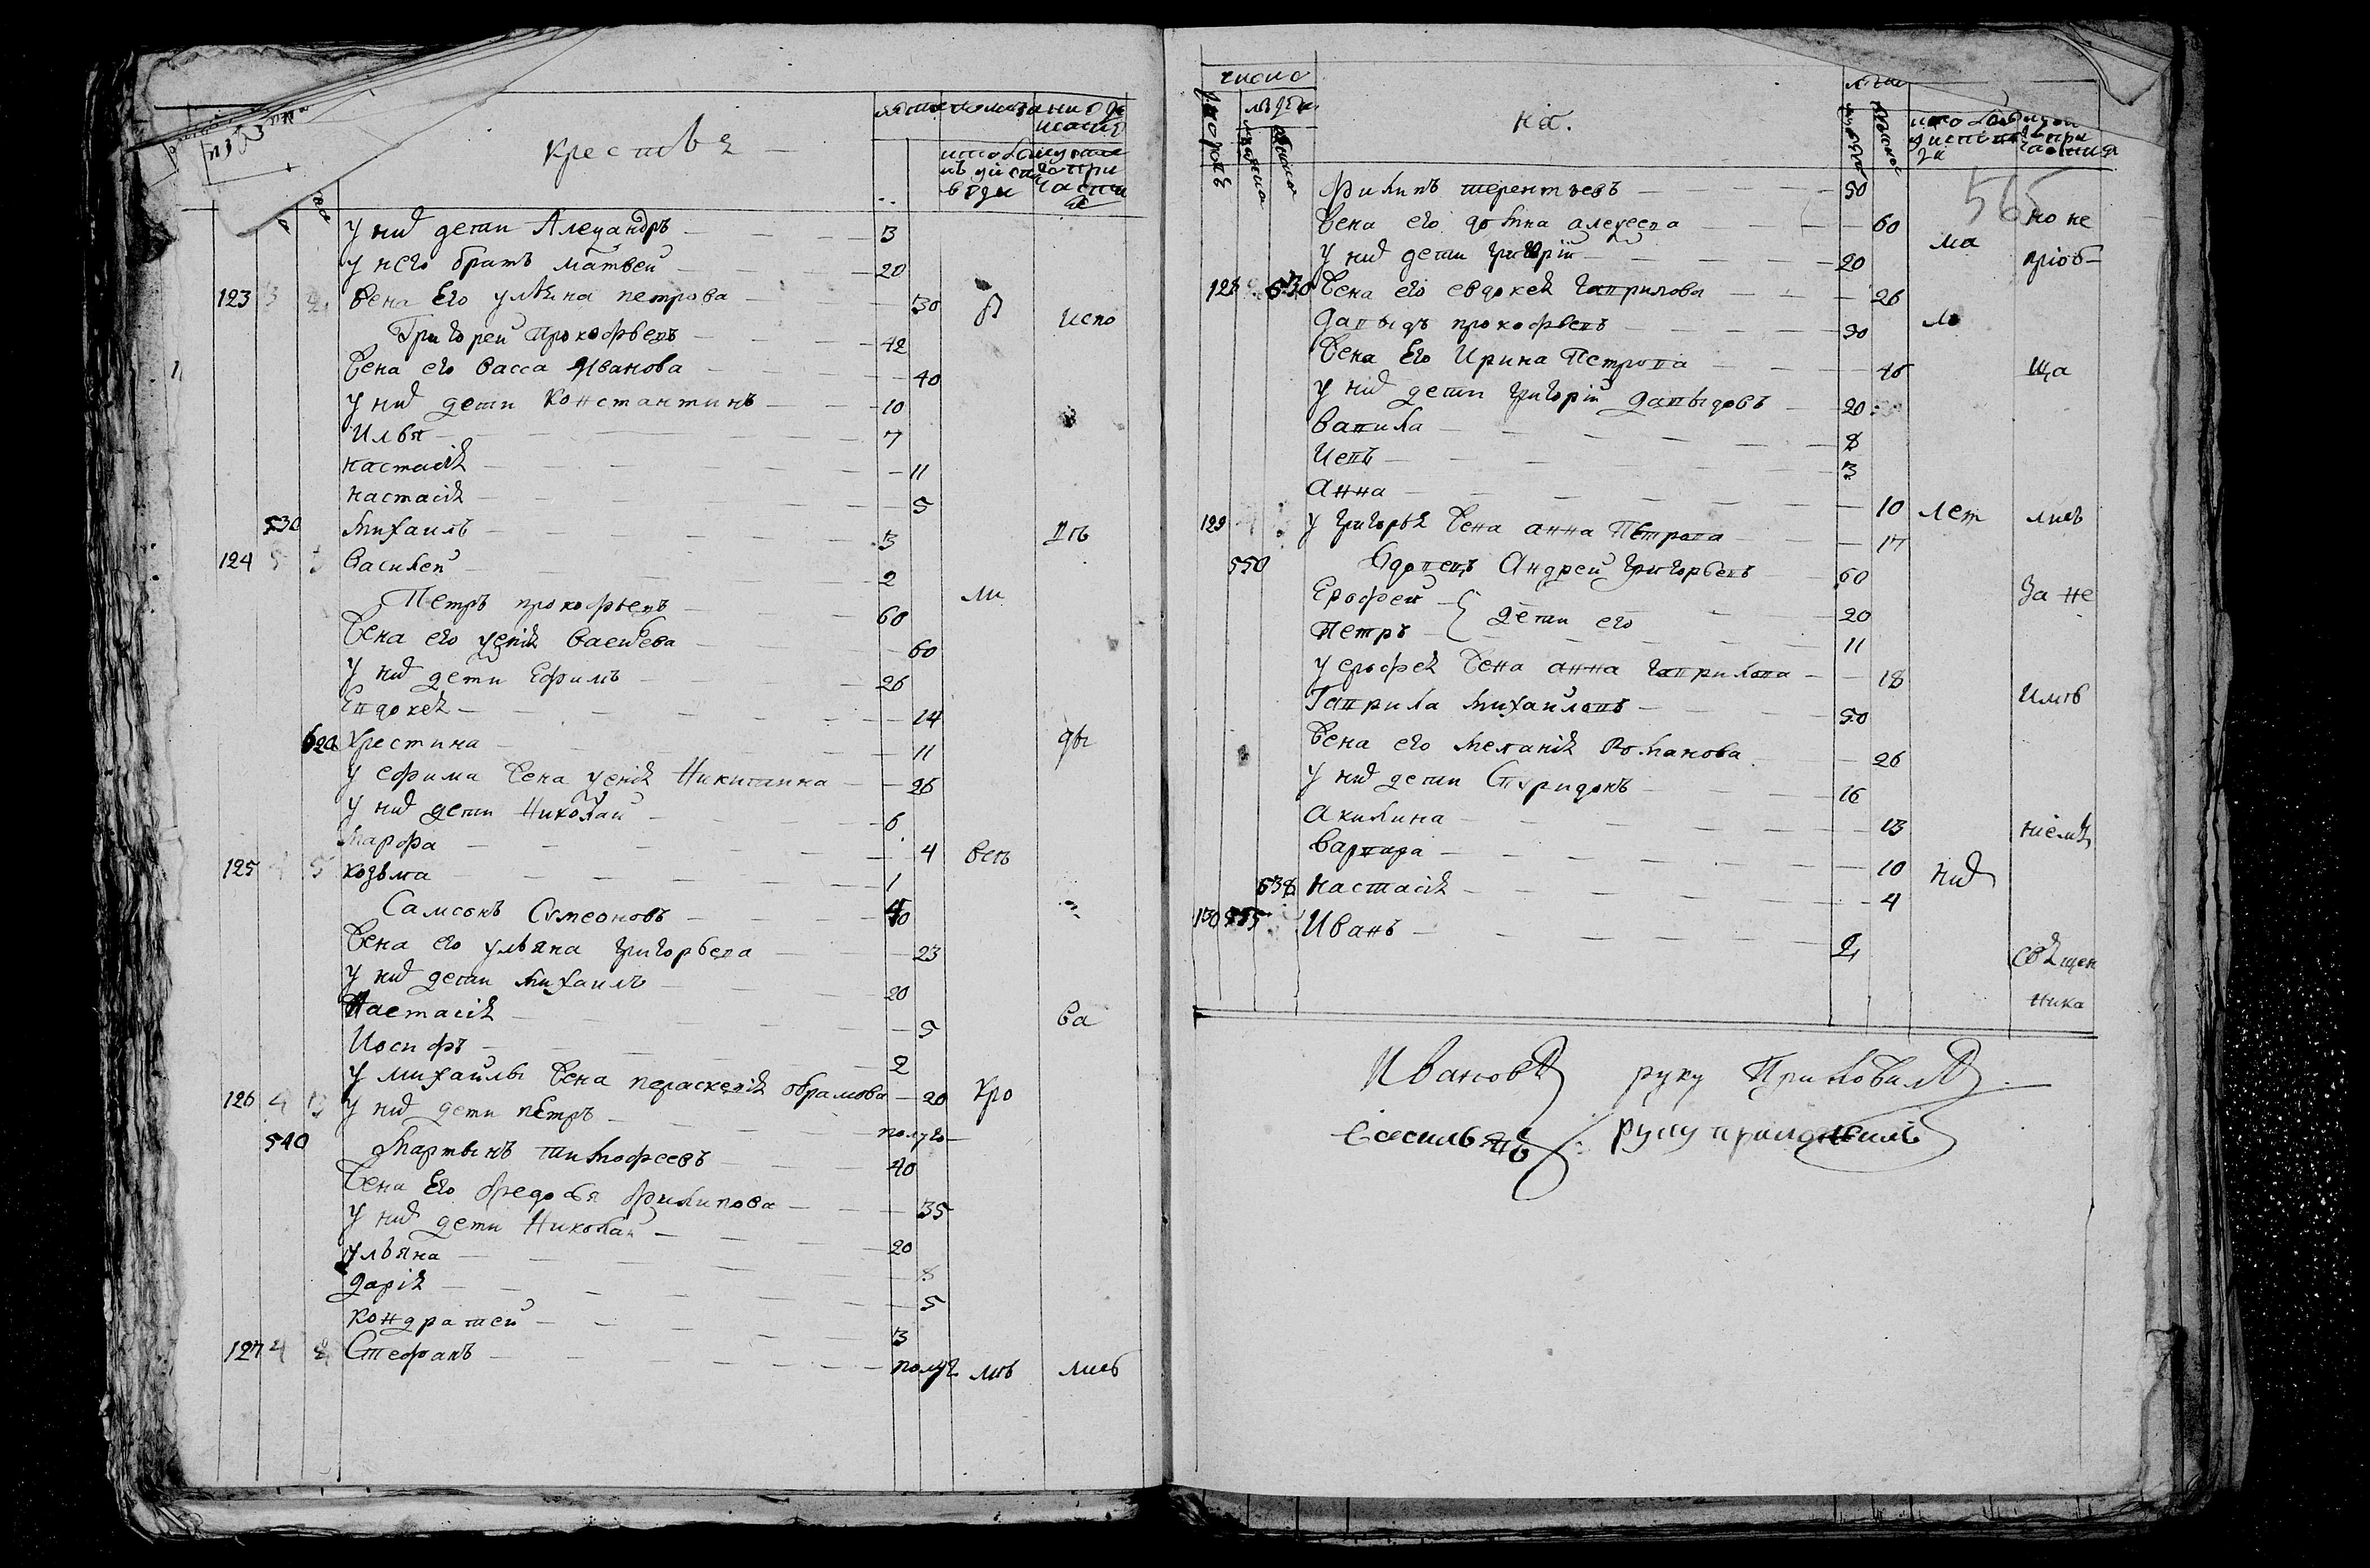 крестья
у них дети Алеѯандръ 3
у него братъ матвей 20
123 жена Его улияна петрова 30 в испо
Григорей Прокофьевъ 42
жена его васса Иванова 40
у них дети Константинъ 10
Илья 7
настасия 11
настасия 5
530 михаилъ 3
124 5 3 василей 2
Петръ прокофьевъ 60 ли
жена его 60
у них дети Ефимъ 26
Евдокея 14
620 Христина 11 ды
у ефима жена Никитина 26
у них дети Николай 6
марфа 4 всѣ
125 4 5 козьма 1
Самсонъ Сѵмеоновъ 40
жена его ульяна григорьева 23
у них дети михаилъ 20
Настасия 5 ва
Иосифъ 2
у михаилы жена пераскевия обрамова 20 кро
126 4 3 у них дети петръ полуго
540 мартынъ тимофеевъ 40
жена Его федосья филипова 35
у них дети Николай 20
ульяна 8
дария 5
кондратей 3
127 4 4 Стефанъ полуг мѣ лись
число
на.
565
филипъ терентьевъ 50 но не
жена его домна алеѯеева 60 ма
у них дети григорий 20 приоб
128 630 жена его евдокея гаврилова 26
давыдъ прокофьевъ 50
жена Его Ирина Петрова 45 ща
у них дети григорий давыдовъ 20
вавила 8
Иевъ 3
анна 10 лет лись
129 у григорья жена анна Петрова 17
550 вдовецъ Андрей григорьевъ 60 за не
Ерофей 20
Петръ дети его 11
у ерофея жена анна гаврилова 18
Гаврила михайловъ 50 имѣ
жена его мелания Романова 26
у них дети Спиридонъ 16
акилина 13 нiемъ
варвара 10 них
638 настасия 4
130 555 Иванъ 2
священ
ника
Ивановъ руку Приложилъ
руку приложилъ